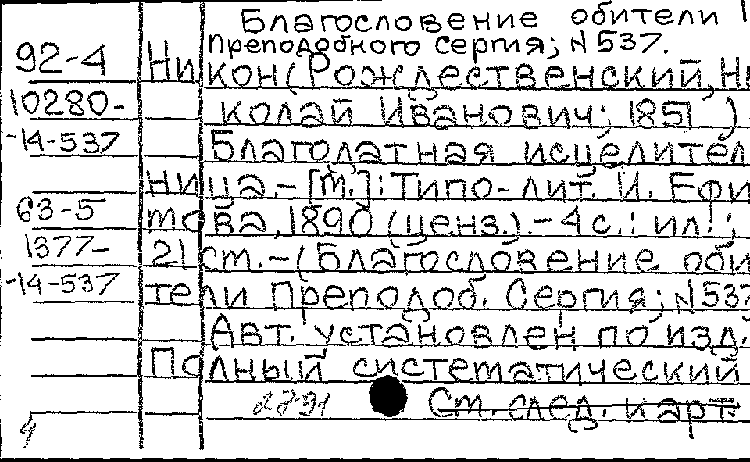 Благословение обители
Преподобного Сергия; N 537.
92-4 Никон (Рождественский, Ни
10280- колай Иванович; 1851 )
-14-537 Благодатная исцелител
ница. - [М.]: Типо-лит. И. Ефи
63-5 мова, 1890 (ценз.). - 4 с.: ил.;
1377- 21 см. - (Благословение оби
-14-537 тели Преподоб. Сергия; N 537
Авт. установлен по изд.
Полный систематический
2791 См. след. карт.
4